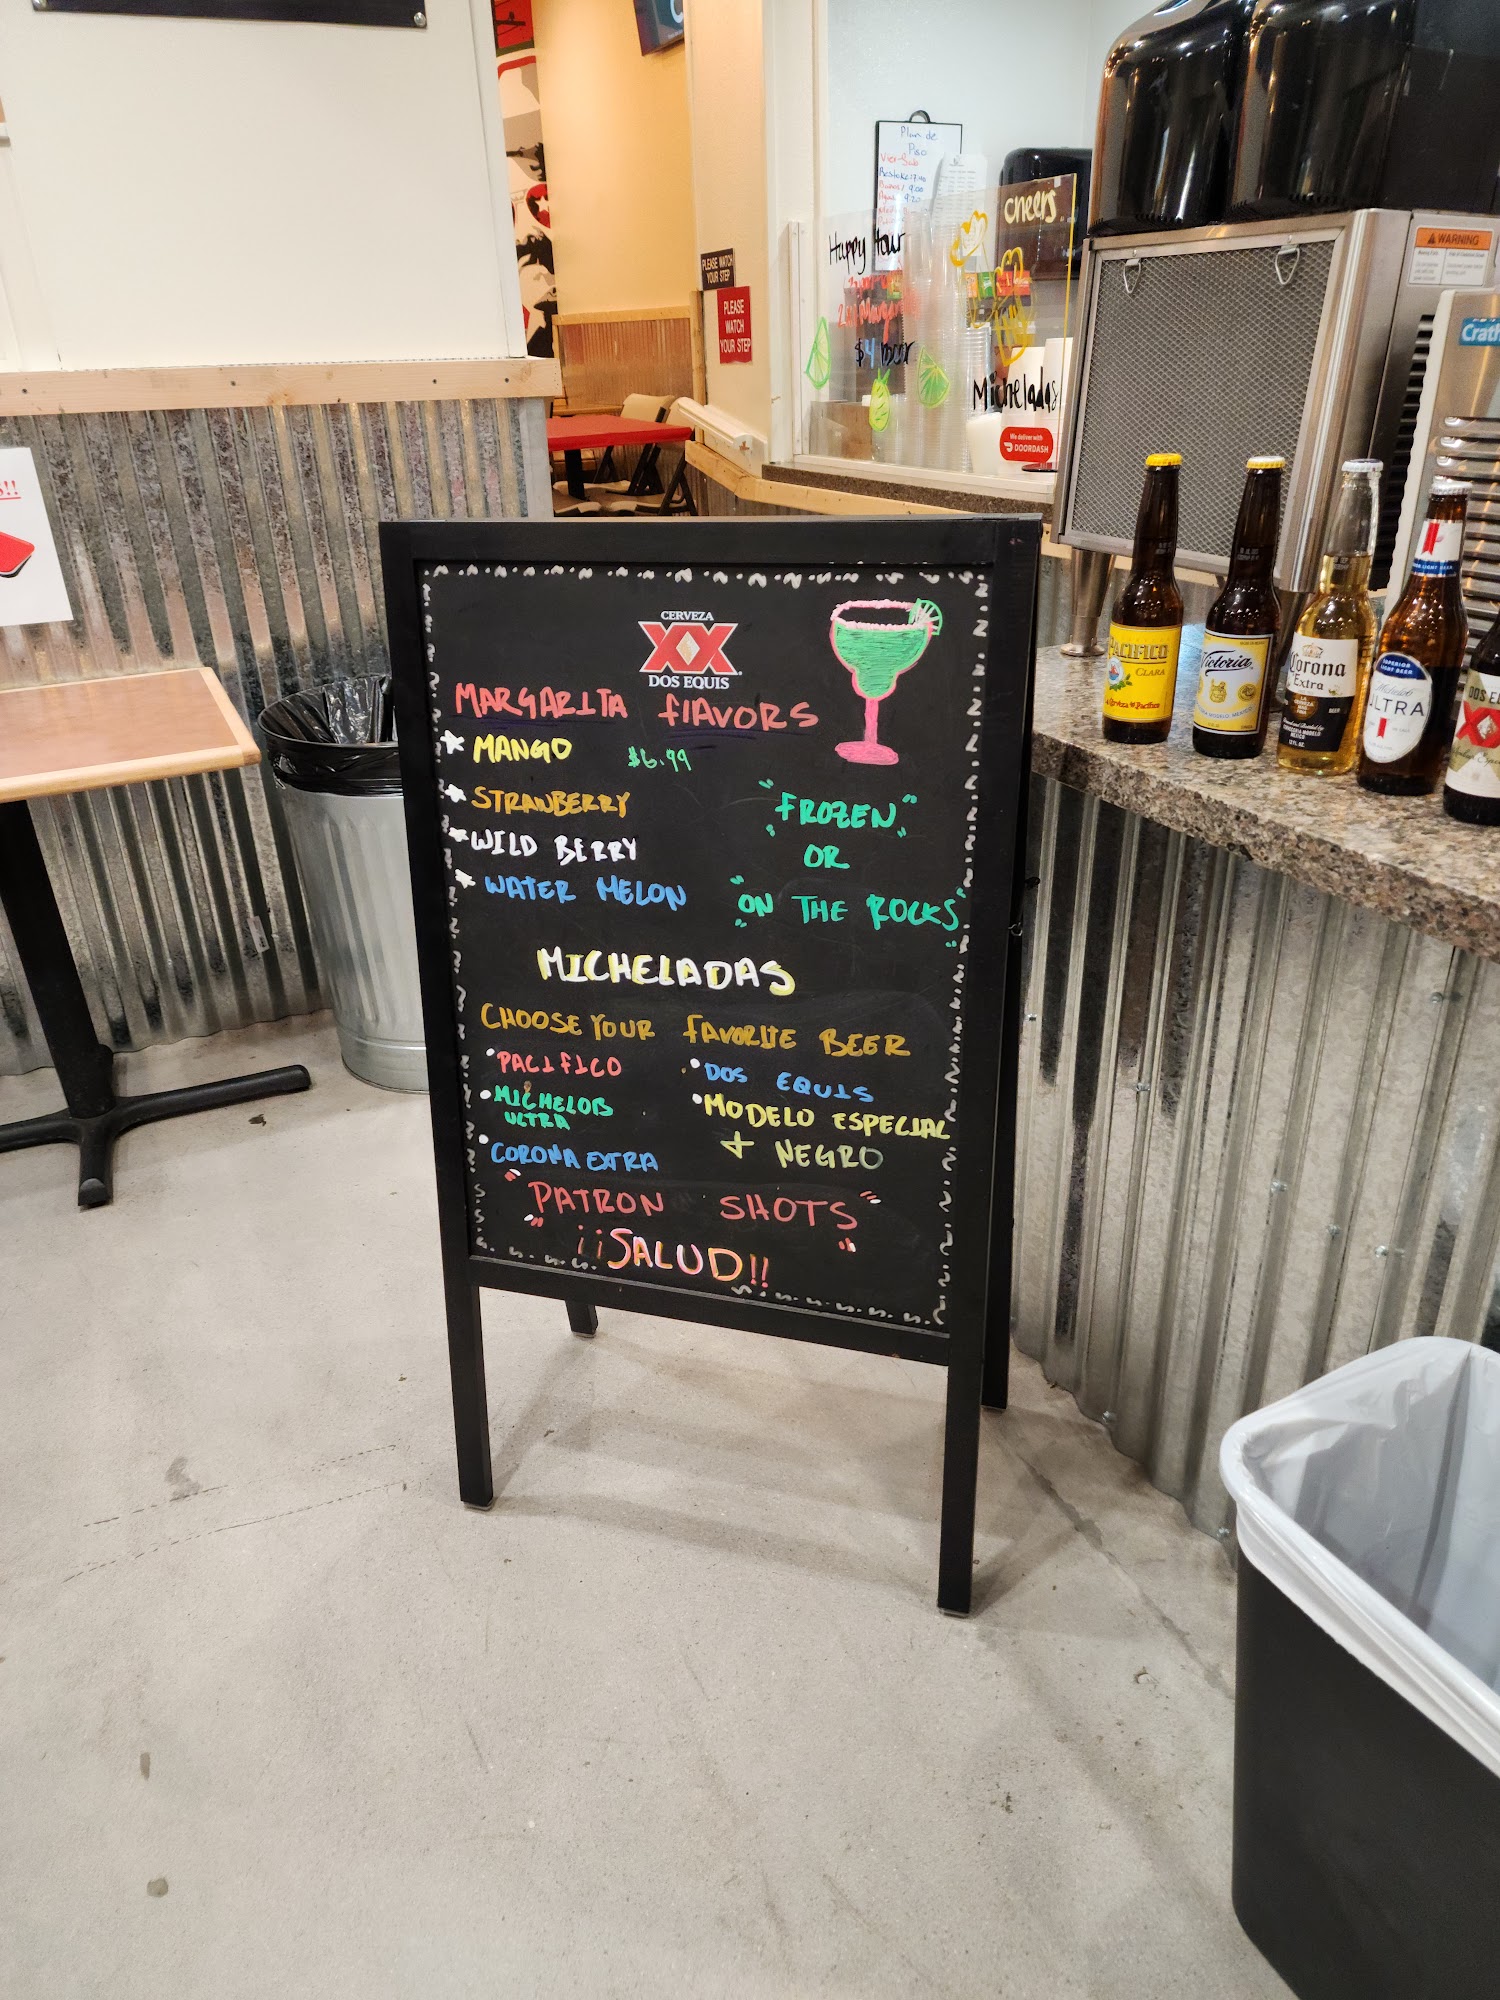 Plan de
Piso
cheers
Happy Hour
$4 
Micheladas
We deliver with
DOORDASH
PLEASE WATCH
YOUR STEP
PLEASE
WATCH
YOUR STEP
WARNING
!!
PACIFICO
CLARA
Victoria
Corona
Extra
Michelob
ULTRA
DOS E
CERVEZA
XX
DOS EQUIS
MARGARITA FLAVORS
MANGO $6.99
STRAWBERRY
WILD BERRY
WATER MELON
"FROZEN"
OR
"ON THE ROCKS"
MICHELADAS
CHOOSE YOUR FAVORITE BEER
• PACIFICO
• MICHELOB
ULTRA
• CORONA EXTRA
• DOS EQUIS
• MODELO ESPECIAL
+ NEGRO
"PATRON SHOTS"
¡¡SALUD!!